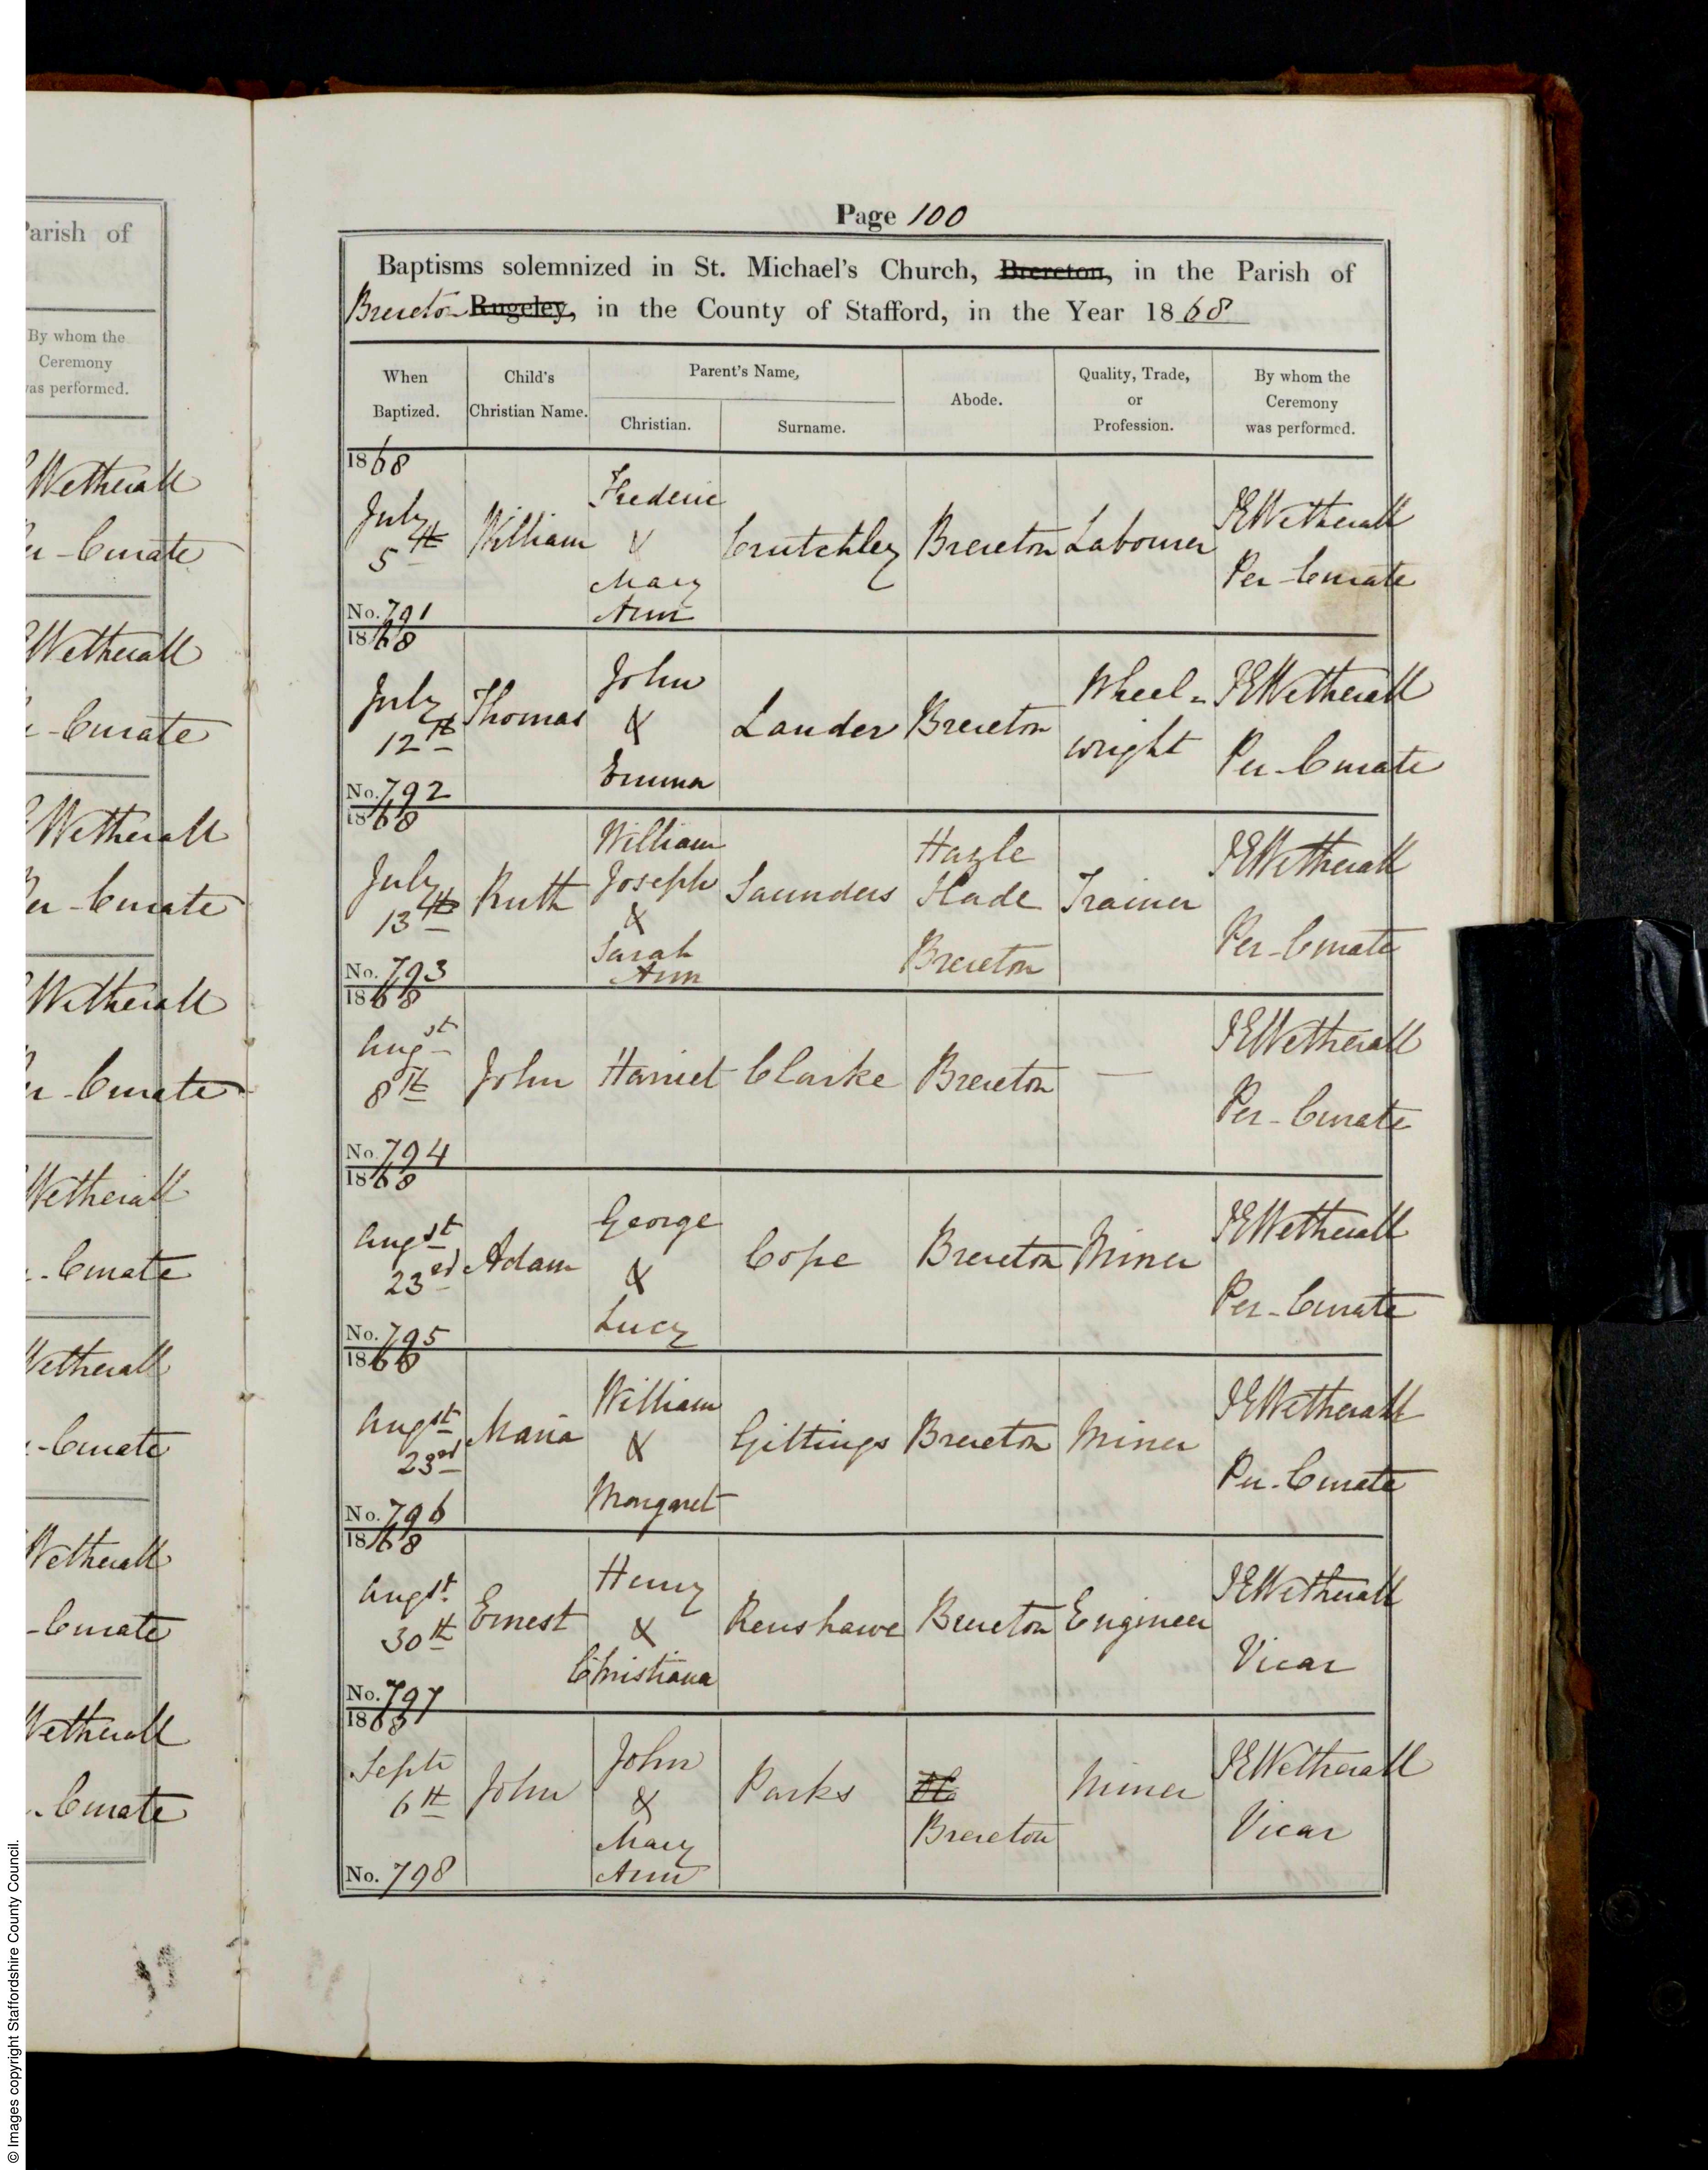 Parish of
By whom the
Ceremony
was performed.
Wetherall
Per-Curate
Wetherall
Curate
Wetherall
Per-Curate
Wetherall
Curate
Wetherall
Curate
Wetherall
Curate
Wetherall
Curate
Wetherall
Curate
Page 100
Baptisms solemnized in St. Michael's Church, Brereton, in the Parish of
Brereton Rugeley, in the County of Stafford, in the Year 1868
When
Baptized.
Child's
Christian Name.
Parent's Name,
Christian.
Surname.
Abode.
Quality, Trade,
or
Profession.
By whom the
Ceremony
was performed.
1868
July
5th
No. 791
William
Frederic
&
Mary
Ann
Crutchley
Brereton
Labourer
JEWetherall
Per-Curate
1868
July
12th
No. 792
Thomas
John
&
Emma
Lander
Brereton
Wheel-
wright
JEWetherall
Per-Curate
1868
July
13th
No. 793
Ruth
William
Joseph
&
Sarah
Ann
Saunders
Hazle
Slade
Brereton
Trainer
JEWetherall
Per-Curate
1868
Augst
8th
No. 794
John
Harriet
Clarke
Brereton
—
JEWetherall
Per-Curate
1868
Augst
23rd
No. 795
Adam
George
&
Lucy
Cope
Brereton
Miner
JEWetherall
Per-Curate
1868
Augst
23rd
No. 796
Maria
William
&
Margaret
Gittings
Brereton
Miner
JEWetherall
Per-Curate
1868
Augst.
30th
No. 797
Ernest
Henry
&
Christiana
Renshawe
Brereton
Engineer
JEWetherall
Vicar
1868
Septr
6th
No. 798
John
John
&
Mary
Ann
Parks
Brereton
Miner
JEWetherall
Vicar
© Images copyright Staffordshire County Council.